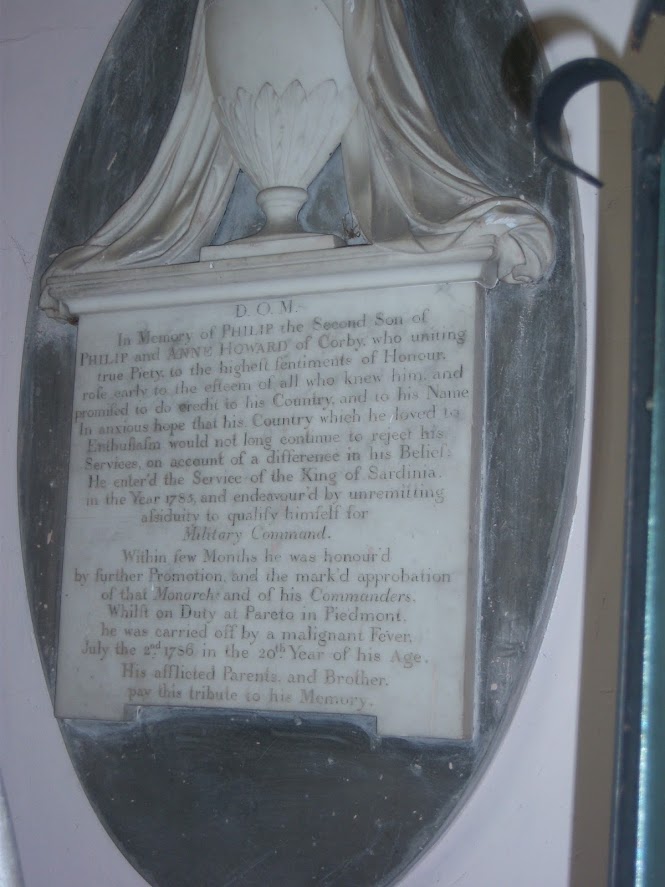 D. O. M.
In Memory of PHILIP the Second Son of
PHILIP and ANNE HOWARD of Corby, who uniting
true Piety, to the higheſt ſentiments of Honour,
roſe early to the eſteem of all who knew him, and
promiſed to do credit to his Country, and to his Name
In anxious hope that his Country which he loved to
Enthuſiaſm would not long continue to reject his
Services, on account of a difference in his Belief;
He enter'd the Service of the King of Sardinia,
in the Year 1785, and endeavour'd by unremitting
aſsiduity to qualify himſelf for
Military Command.
Within few Months he was honour'd
by further Promotion, and the mark'd approbation
of that Monarch, and of his Commanders.
Whilſt on Duty at Pareto in Piedmont,
he was carried off by a malignant Fever,
July the 2nd 1786, in the 20th Year of his Age.
His afflicted Parents, and Brother,
pay this tribute to his Memory.